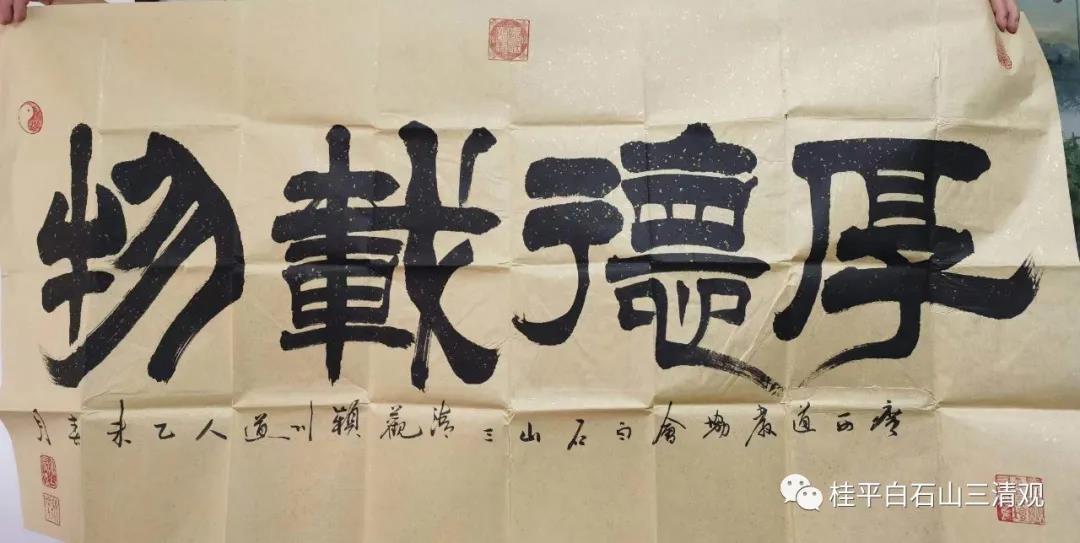 厚德載物
廣西道教協會白石山三清觀穎川道人乙未春月
桂平白石山三清观